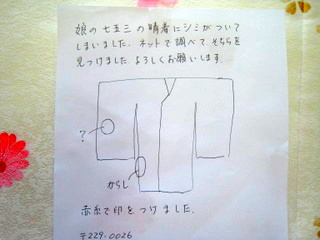 娘の七五三の晴着にシミがついて
しまいました。ネットで調べて、そちらを
見つけました。よろしくお願いします。
?
からし
赤糸で印をつけました。
〒229-0026